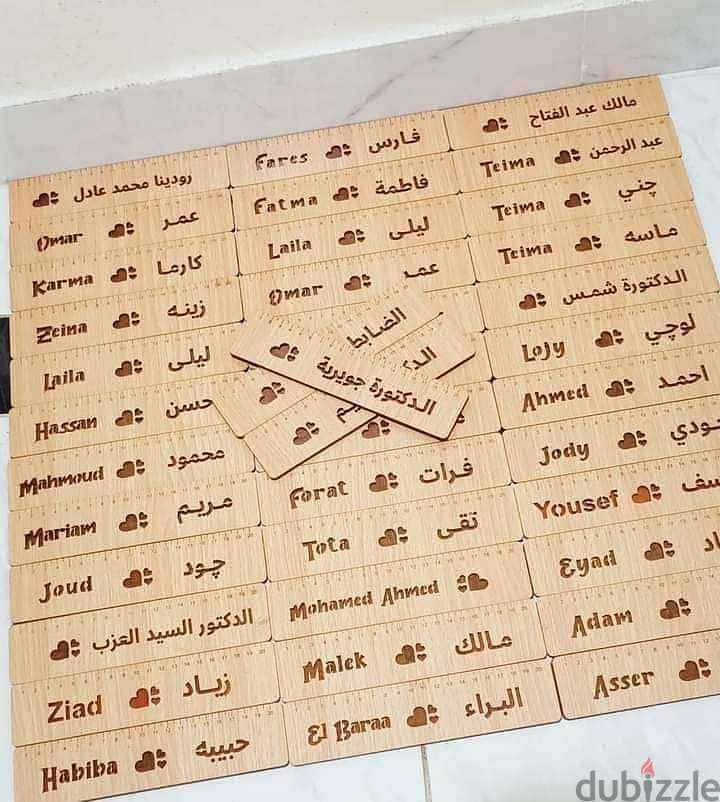 رودينا محمد عادل
Omar عمر
Karma كارما
Zeina زينه
Laila ليلى
Hassan حسن
Mahmoud محمود
Mariam مريم
Joud چود
الدكتور السيد العزب
Ziad زياد
Habiba حبيبه
Fares فارس
Fatma فاطمة
Laila ليلى
Omar عمر
الضابط
الدكتورة جويرية
Forat فرات
Tota تقى
Mohamed Ahmed
Malek مالك
El Baraa البراء
مالك عبد الفتاح
Teima عبد الرحمن
Teima چني
Teima ماسه
الدكتورة شمس
Lojy لوچي
Ahmed احمد
Jody
Yousef
Eyad
Adam
Asser
dubizzle